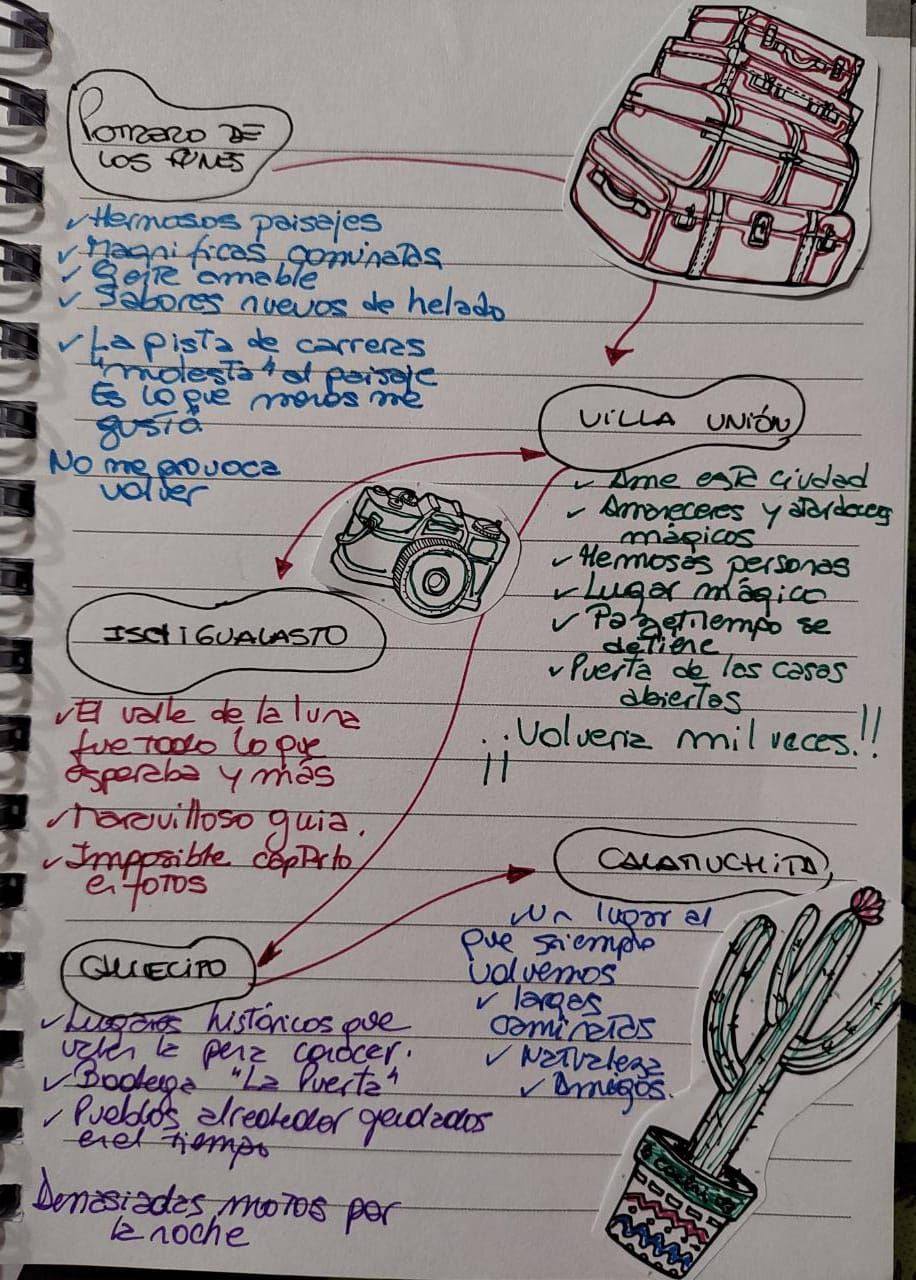 POTRERO DE
LOS FUNES
✓ Hermosos paisajes
✓ Magnificas caminatas
✓ Gente amable
✓ Sabores nuevos de helado
✓ La pista de carreras
"molesta" al paisaje
Es lo que menos me
gustó
No me provoca
volver
VILLA UNIÓN
✓ Ame este ciudad
✓ Amaneceres y atardeceres
mágicos
✓ Hermosas personas
✓ Lugar mágico
✓ Paz el tiempo se
detiene
✓ Puerta de las casas
abiertas
¡¡Volveria mil veces.!!
ISCHIGUALASTO
✓ El valle de la luna
fue todo lo que
esperaba y más
✓ Maravilloso guia.
✓ Imposible captarlo
en fotos
CALAMUCHITA
✓ Un lugar al
que siempre
volvemos
✓ largas
caminatas
✓ Naturaleza
✓ Amigos.
CHILECITO
✓ Lugares históricos que
valen la pena conocer.
✓ Bodega "La Puerta"
✓ Pueblos alrededor quedados
en el tiempo
Demasiadas motos por
la noche